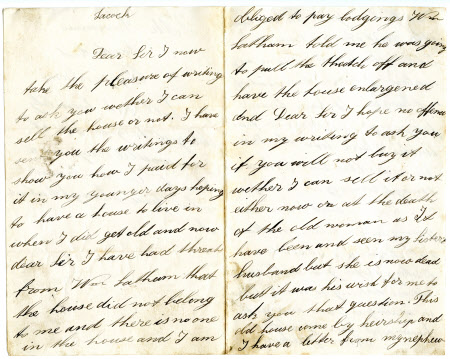 Lacock
Dear Sir I now
take the pleasure of writing
to ask you wether I can
sell the house or not. I have
sent you the writings to
show you how I paid for
it in my younger days hoping
to have a house to live in
when I did get old and now
dear Sir I have had threats
from Wm Latham that
the house did not belong
to me and there is no one
in the house and I am
obliged to pay lodgings Wm
Latham told me he was going
to pull the thatch off and
have the house enlargened
And Dear Sir I hope no offence
in my writing to ask you
if you will not buy it
wether I can sell it or not
either now or at the death
of the old woman as I
have been and seen my Sisters
husband but she is now dead
but it was his wish for me to
ask you that question. This
old house come by heirship and
I have a letter from my nephew